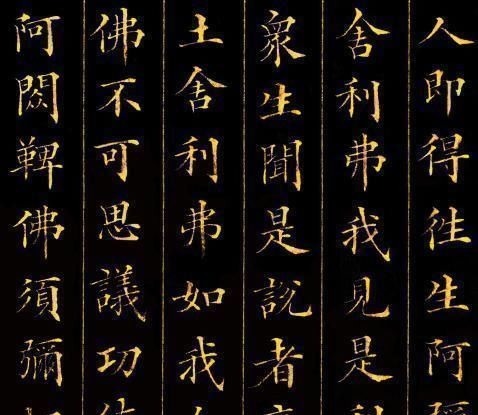 人即得往生阿
舍利弗我見是
衆生聞是說者
土舍利弗如我
佛不可思議功
阿閦鞞佛須彌